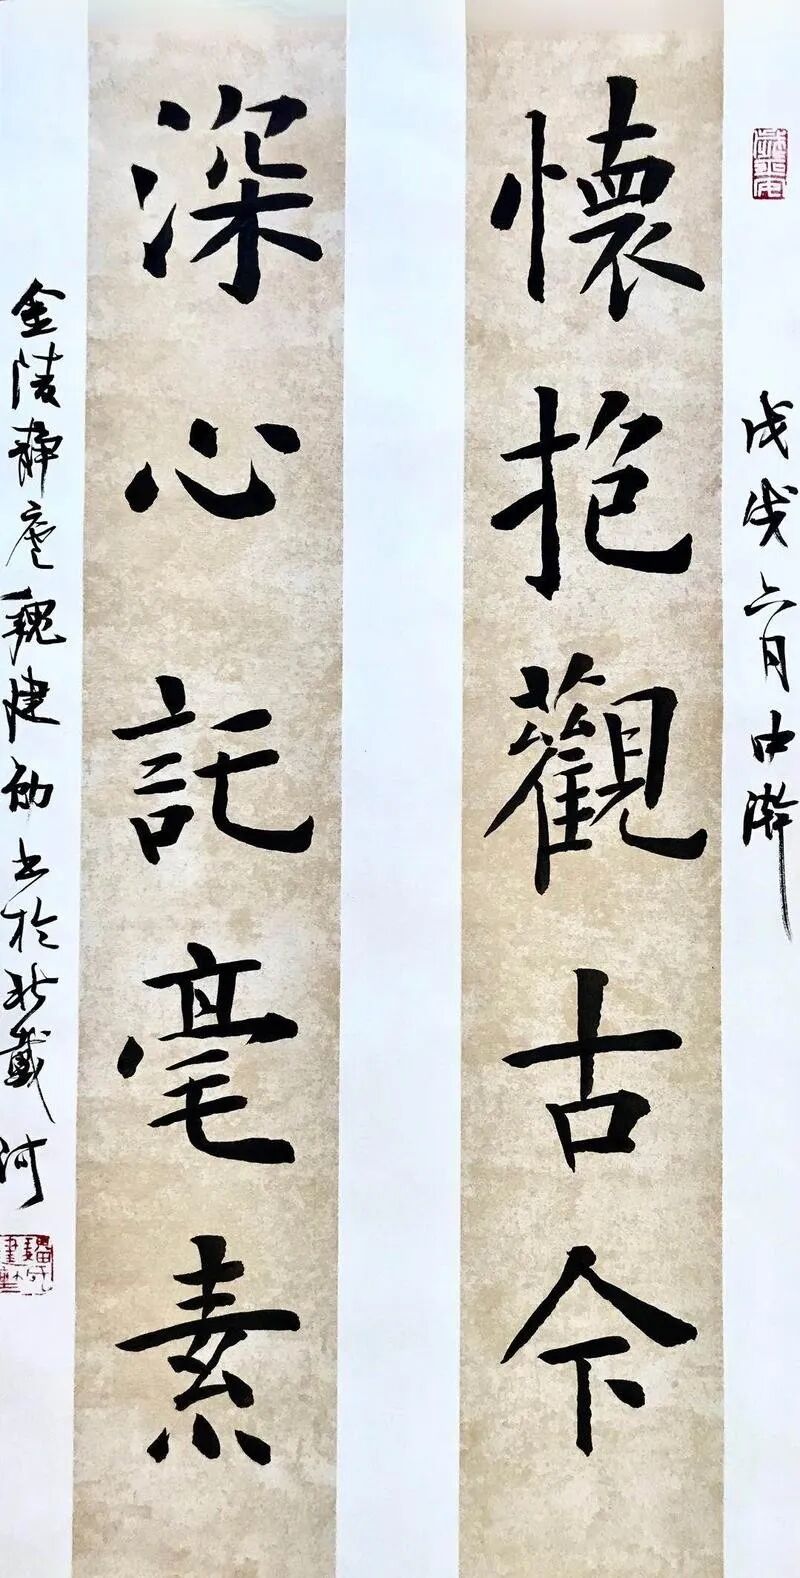 戊戌六月中澣
懷抱觀古今
深心託毫素
金陵靜廬魏建勋书於北戴河